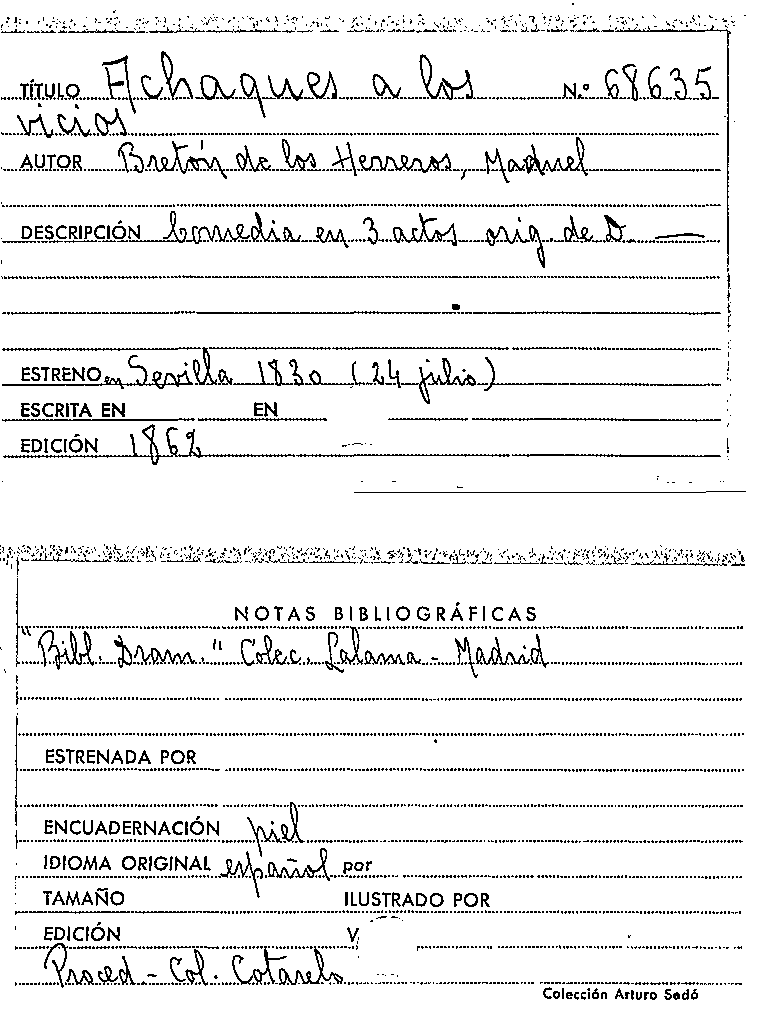 TÍTULO Achaques a los N.º 68635
vicios
AUTOR Bretón de los Herreros, Manuel
DESCRIPCIÓN Comedia en 3 actos orig. de D. —
ESTRENO en Sevilla 1830 (24 julio)
ESCRITA EN EN
EDICIÓN 1862
NOTAS BIBLIOGRÁFICAS
"Bibl. Dram." Colec. Lalama - Madrid
ESTRENADA POR
ENCUADERNACIÓN piel
IDIOMA ORIGINAL español por
TAMAÑO ILUSTRADO POR
EDICIÓN V
Proced - Col. Cotarelo
Colección Arturo Sedó